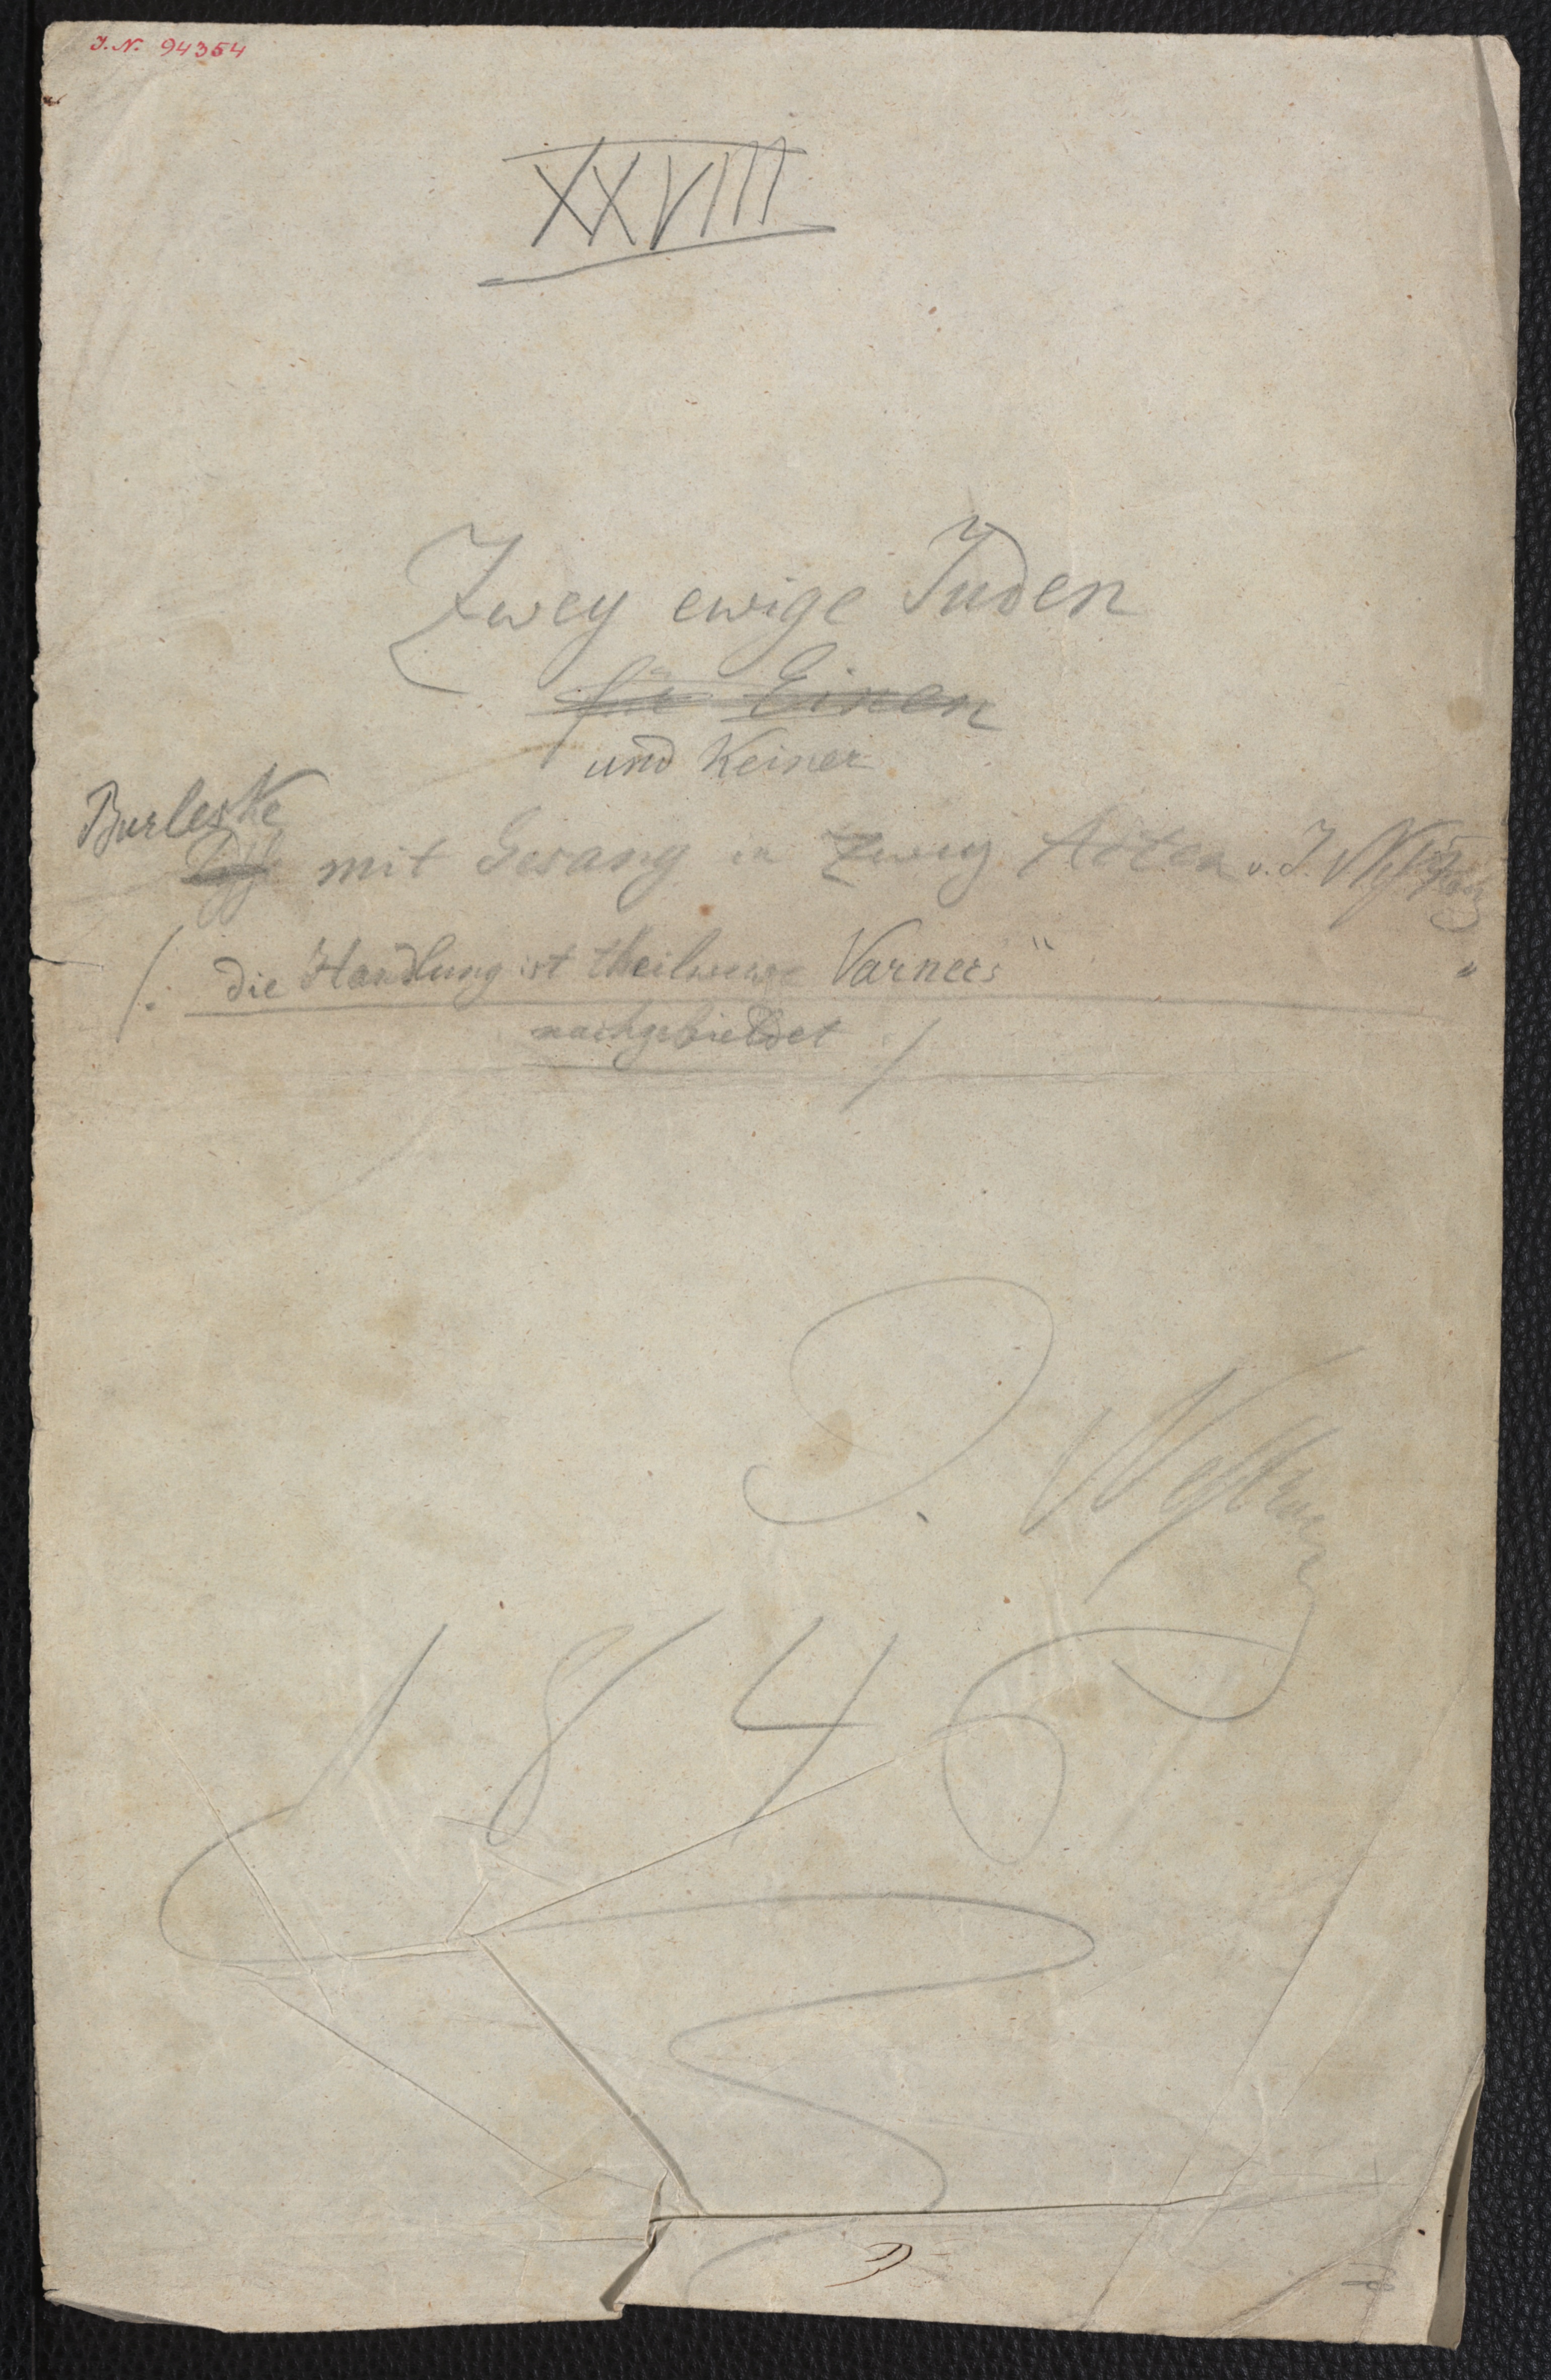 J. N. 94354
XXVIII
Zwey ewige Juden
für Einen
und Keiner
Burleske
mit Gesang in zwey Acten v. J. Nestroy
/: die Handlung ist theilweise Varners"
nachgebildet /
J. Nestroy
1846